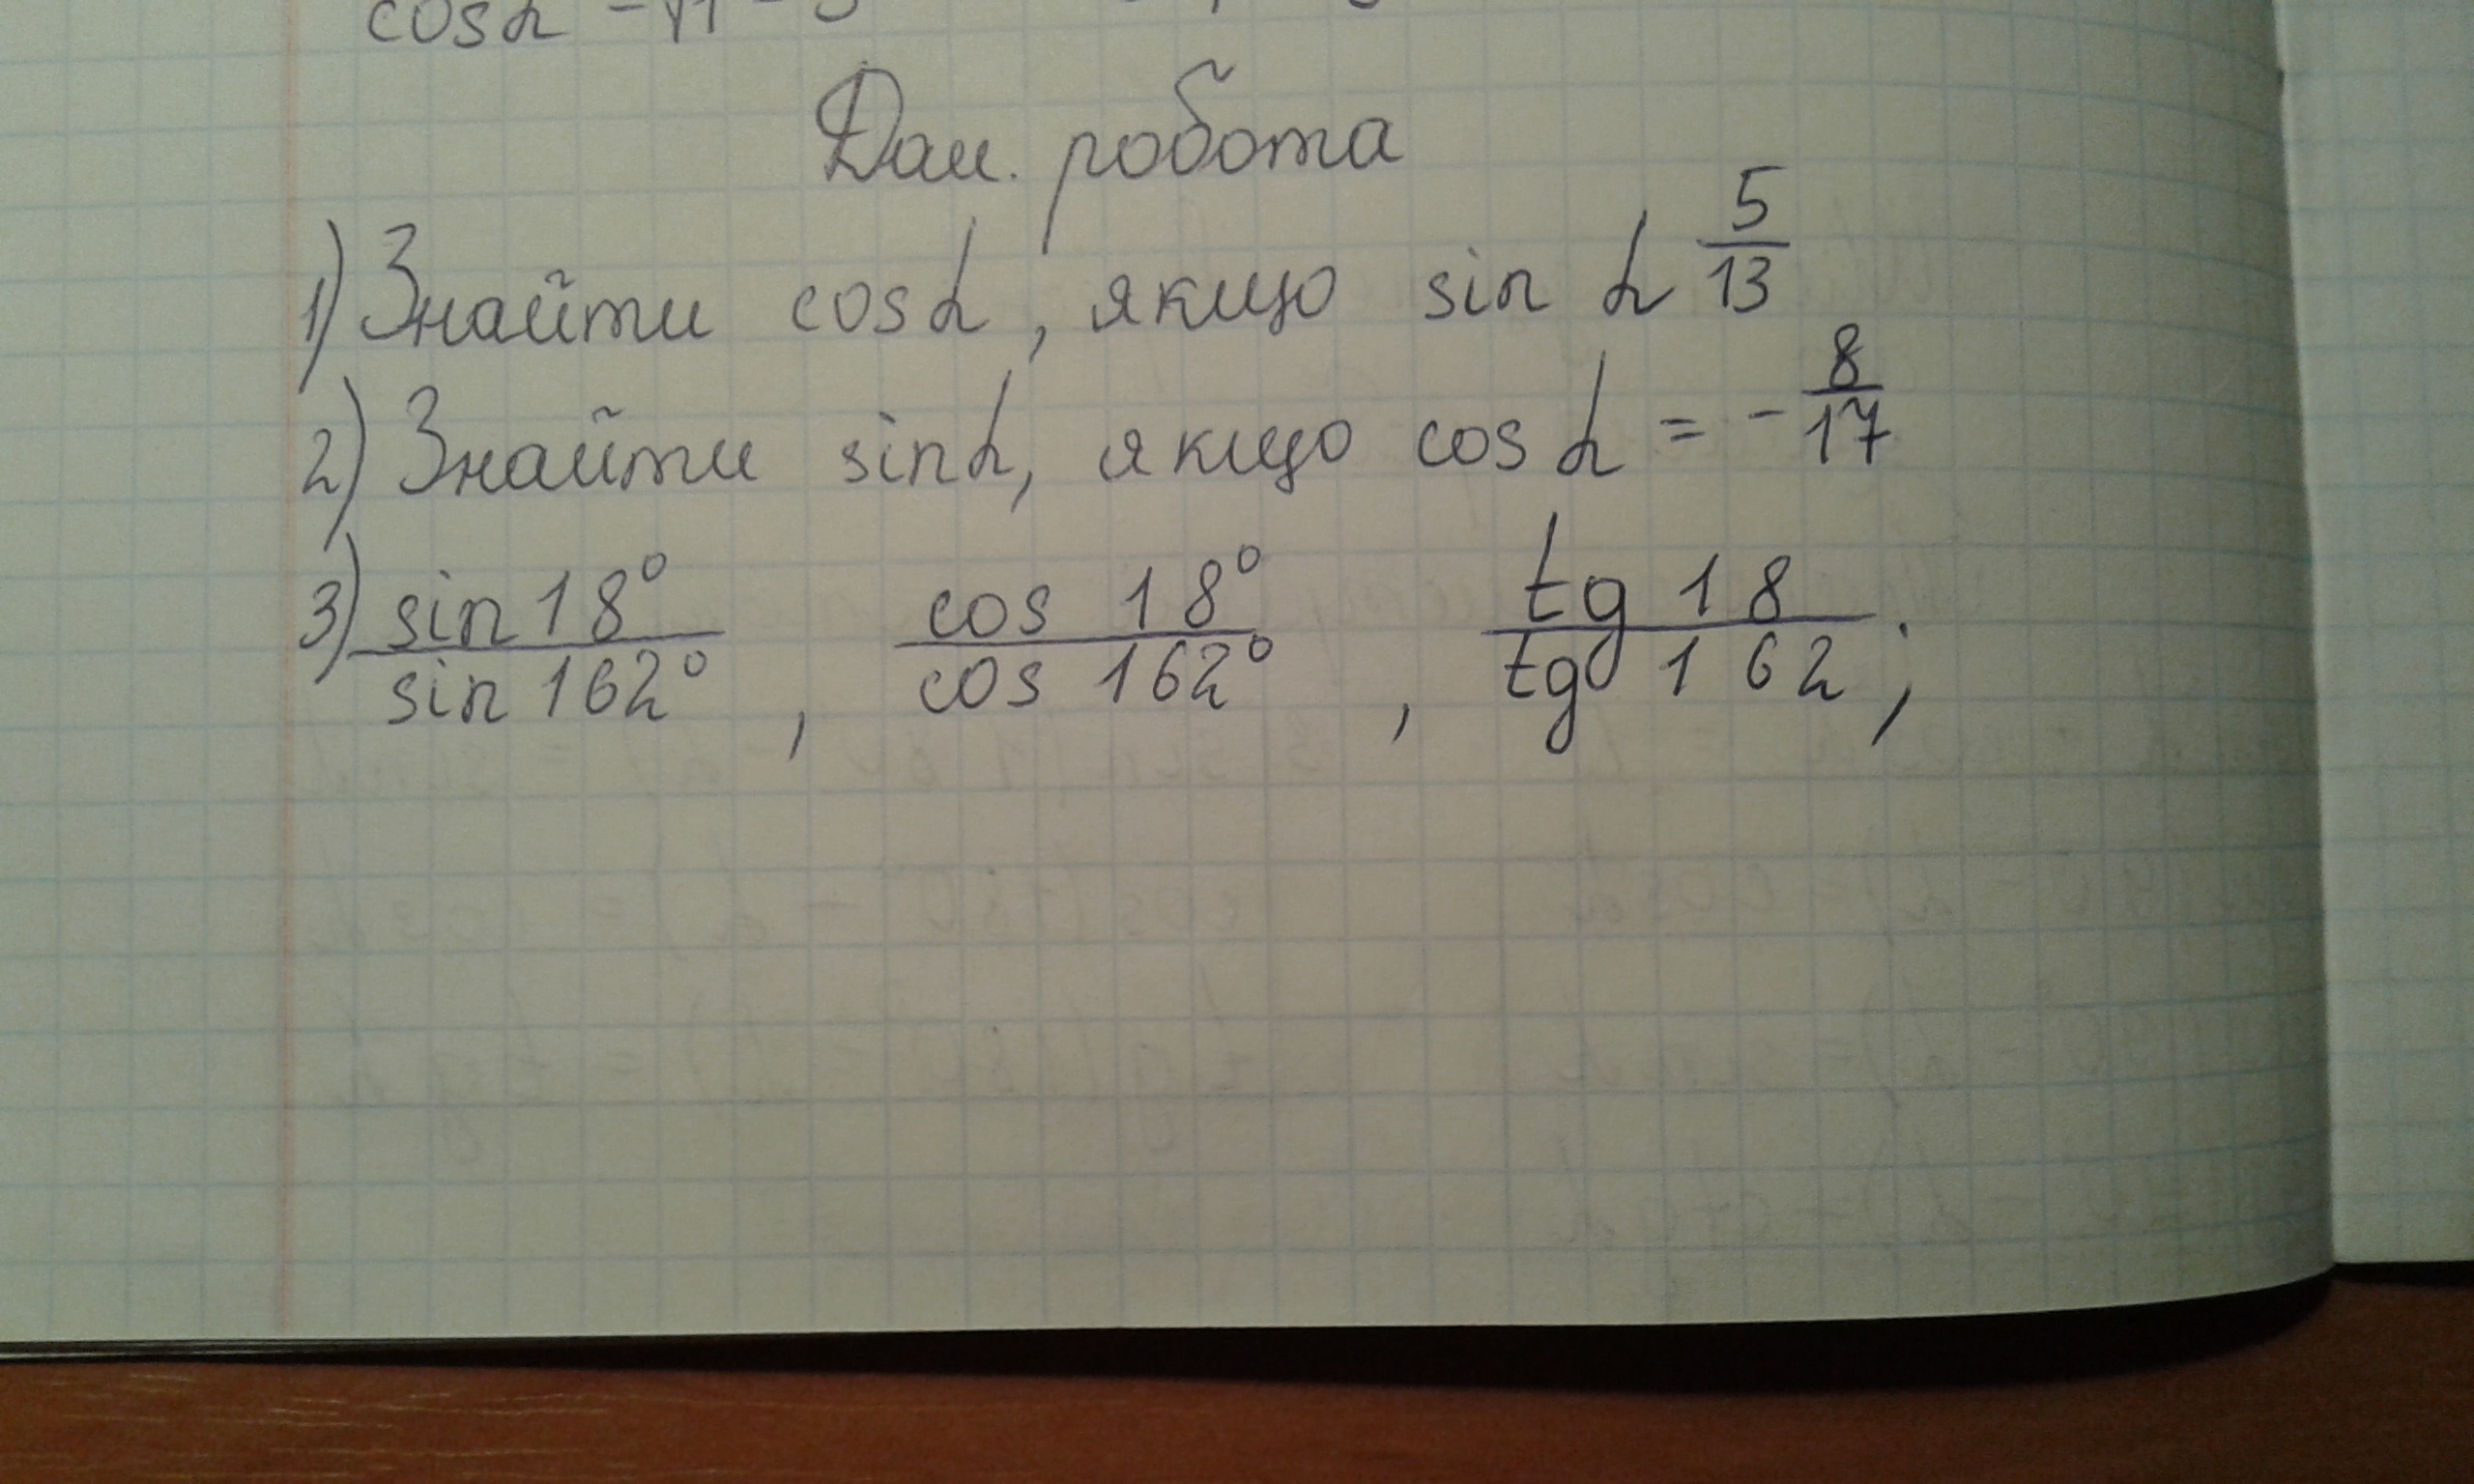 cos α
Дом. робота
1) Знайти cos α, якщо sin α 5/13
2) Знайти sin α, якщо cos α = - 8/17
3) sin 18°/sin 162°, cos 18°/cos 162°, tg 18/tg 162;